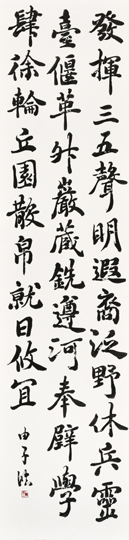 發揮三五聲明遐裔泛野休兵靈
臺偃革舛嚴葴銑遵河奉璧學
肆徐輪丘園散帛就日攸宜
由子溪